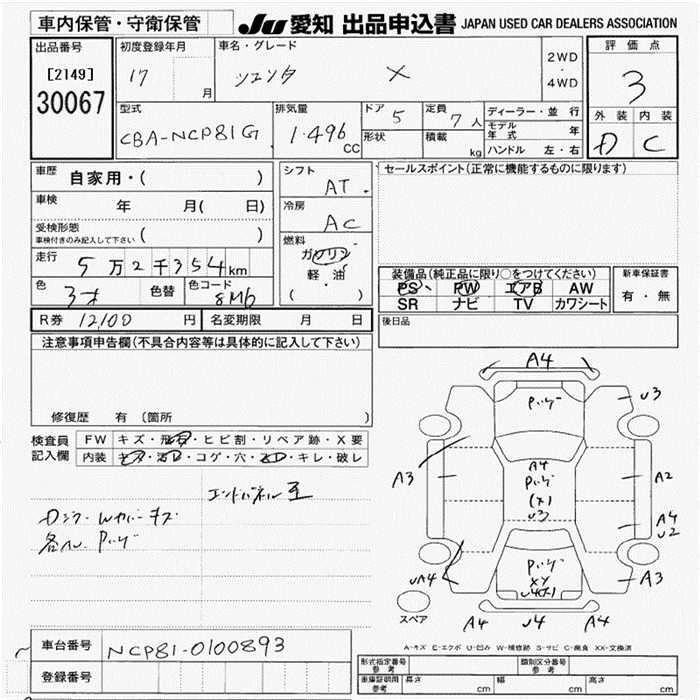 車内保管・守衛保管
JU 愛知 出品申込書 JAPAN USED CAR DEALERS ASSOCIATION
出品番号
[2149]
30067
初度登録年月
17 月
車名・グレード
X
2WD
・
4WD
評価点
3
外装 内装
D C
型式
CBA-NCP81G
排気量
1.496 CC
ドア 5
形状
定員 7人
積載 kg
ディーラー・並行
モデル年式 年
ハンドル 左・右
車歴 自家用・( )
車検 年 月( 日)
受検形態
車検付きのみ記入して下さい ( )
走行 5万2千354km
色 色替 色コード 8M6
シフト
AT
冷房
AC
燃料
ガソリン
軽・油
( ・ )
R券 12100 円 名変期限 月 日
セールスポイント(正常に機能するものに限ります)
装備品(純正品に限り○をつけてください)
PS PW エアB AW
SR ナビ TV カワシート
新車保証書
有・無
後日品
注意事項申告欄(不具合内容等は具体的に記入して下さい)
修復歴 有 〔箇所 〕
検査員
記入欄
FW キズ・飛石・ヒビ割・リペア跡・X要
内装 キズ・汚レ・コゲ・穴・スレ・キレ・破レ
A4
U3
A3
A2
A4
U2
A3
UA4
A4 U4 A4
A4
(X)
U3
XY
スペア
A-キズ E-エクボ U-凹み W-補修跡 S-サビ C-腐食 XX-交換済
車台番号 NCP81-0100893
登録番号
形式指定番号 参考
類別区分番号 参考
車庫証明用 参考 長さ cm 幅 cm 高さ cm